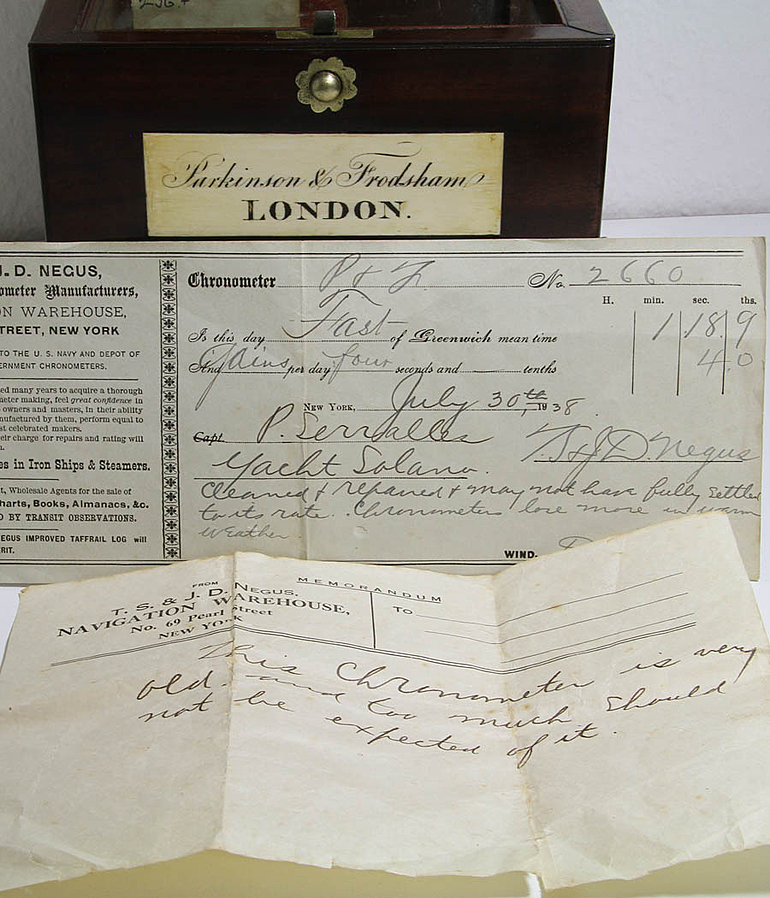 Parkinson & Frodsham
LONDON.
J. D. NEGUS,
ometer Manufacturers,
ON WAREHOUSE,
TREET, NEW YORK
TO THE U. S. NAVY AND DEPOT OF
ERNMENT CHRONOMETERS.
ed many years to acquire a thorough
meter making, feel great confidence in
owners and masters, in their ability
nufactured by them, perform equal to
st celebrated makers.
eir charge for repairs and rating will
a.
es in Iron Ships & Steamers.
t, Wholesale Agents for the sale of
harts, Books, Almanacs, &c.
D BY TRANSIT OBSERVATIONS.
EGUS IMPROVED TAFFRAIL LOG will
RIT.
Chronometer P & F No. 2660
H. min. sec. ths.
Is this day Fast of Greenwich mean time 1 18 9
And Gains per day four seconds and tenths 4.0
NEW YORK, July 30th, 1938.
Capt. P. Serralles T.S & J.D. Negus
Yacht Solano.
Cleaned & repaired & may not have fully settled
to its rate. Chronometers lose more in warm
weather
WIND.
FROM
T. S. & J. D. NEGUS,
NAVIGATION WAREHOUSE,
No. 69 Pearl Street
NEW YORK
MEMORANDUM
TO
This Chronometer is very
old and too much should
not be expected of it.